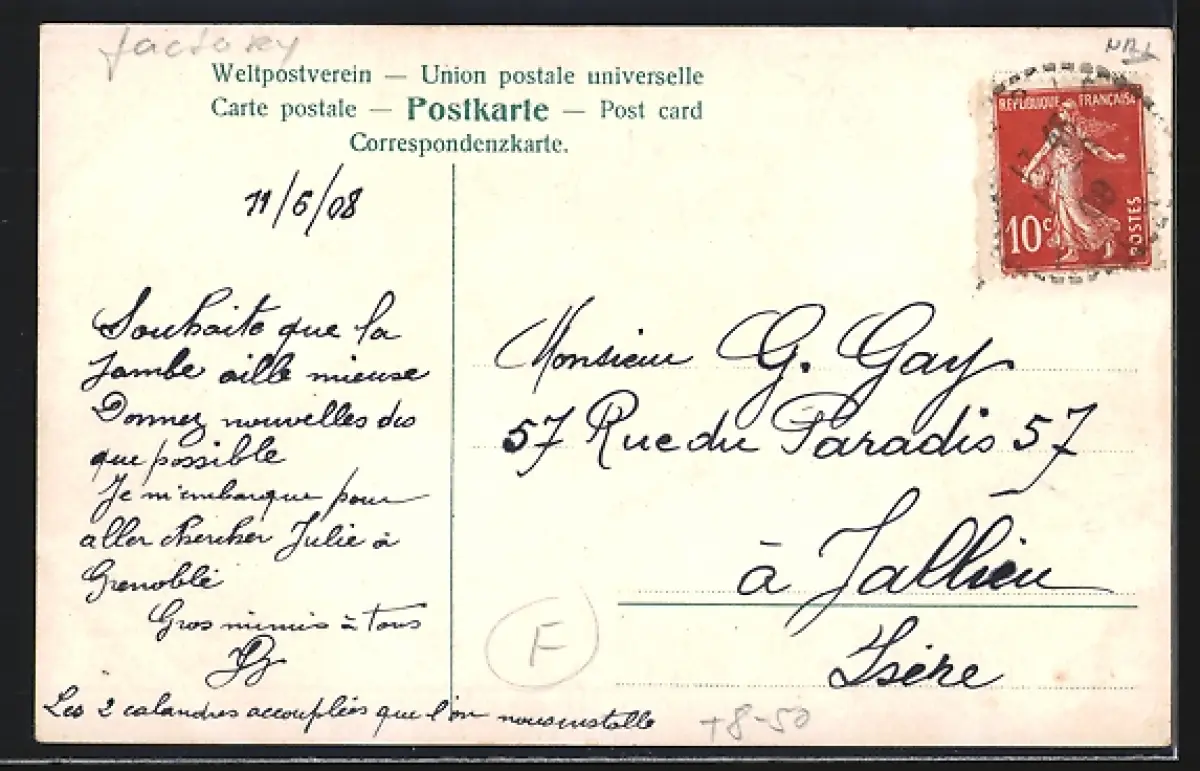 factory
Weltpostverein — Union postale universelle
Carte postale — Postkarte — Post card
Correspondenzkarte.
REPUBLIQUE FRANÇAISE
10c
POSTES
11/6/08
Souhaite que la
Jambe aille mieuse
Donnez nouvelles des
que possible
Je m'embarque pour
aller chercher Julie à
Grenoble
Gros mimis à tous
Les 2 calandres accouplées que l'on nous installe
Monsieur G. Gay
57 Rue du Paradis 57
à Jallieu
Isère
F
+8-50